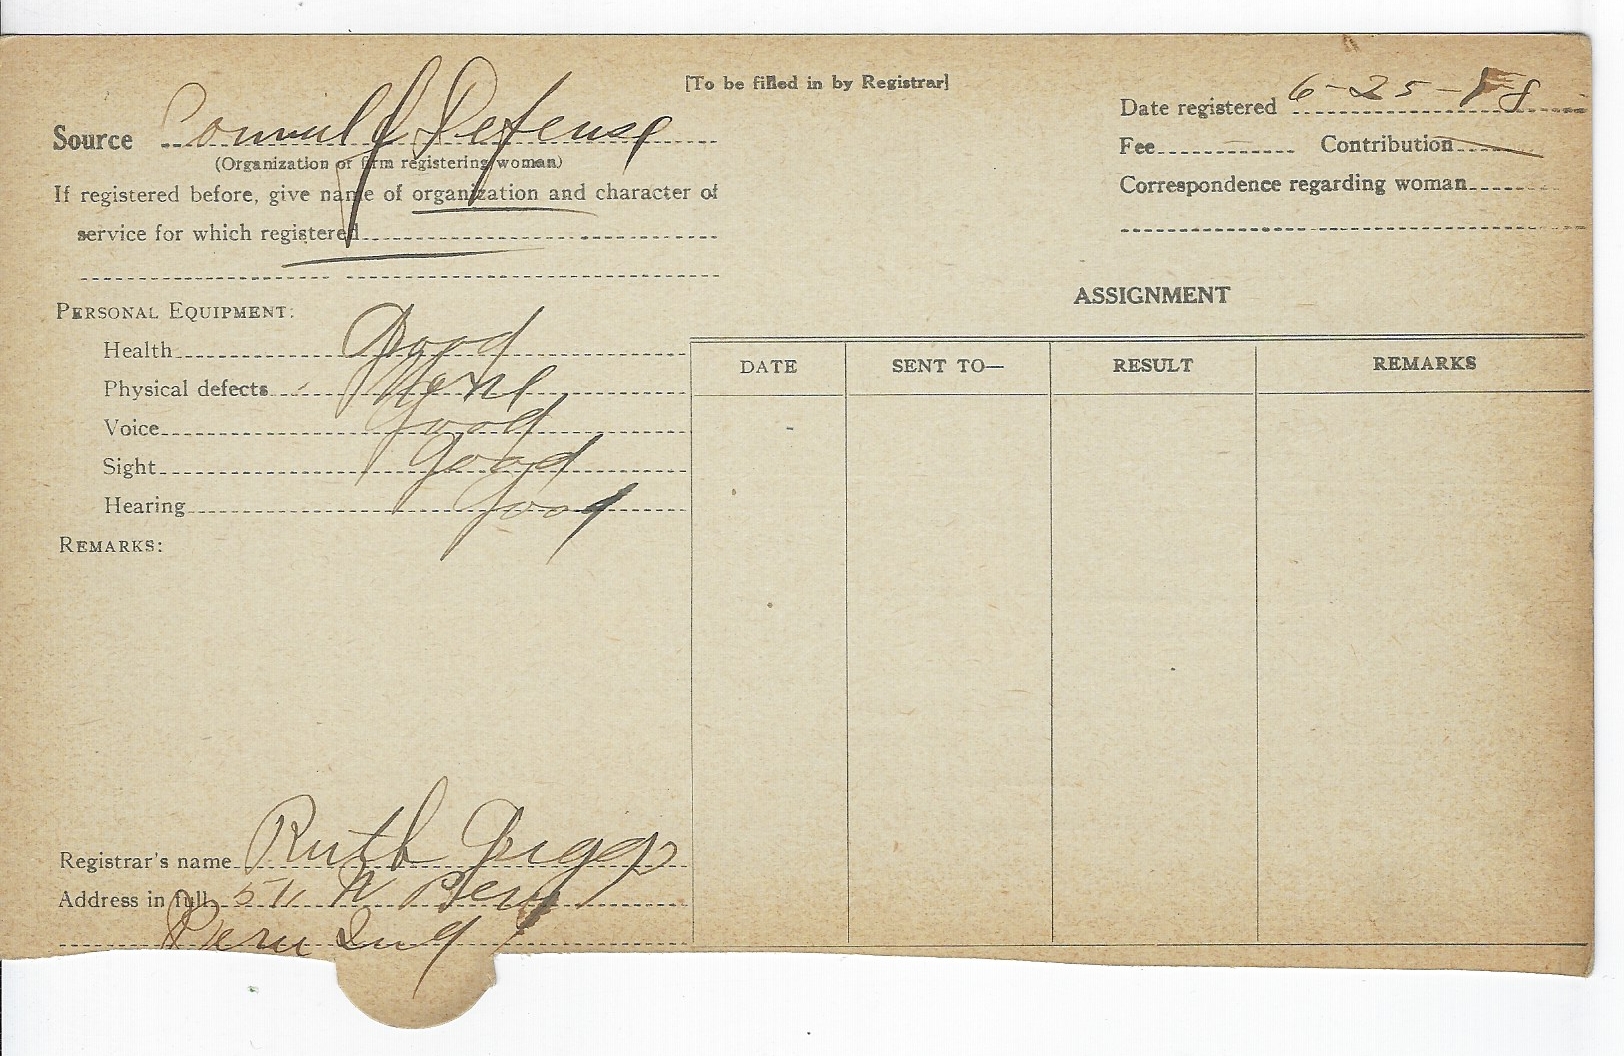 [To be filled in by Registrar]
Source Council of Defense
(Organization or firm registering woman)
If registered before, give name of organization and character of
service for which registered
Date registered 6-25-18
Fee Contribution
Correspondence regarding woman
PERSONAL EQUIPMENT:
Health Good
Physical defects None
Voice Good
Sight Good
Hearing Good
REMARKS:
ASSIGNMENT
DATE SENT TO— RESULT REMARKS
Registrar's name Ruth
Address in full 511 W
Peru Ind